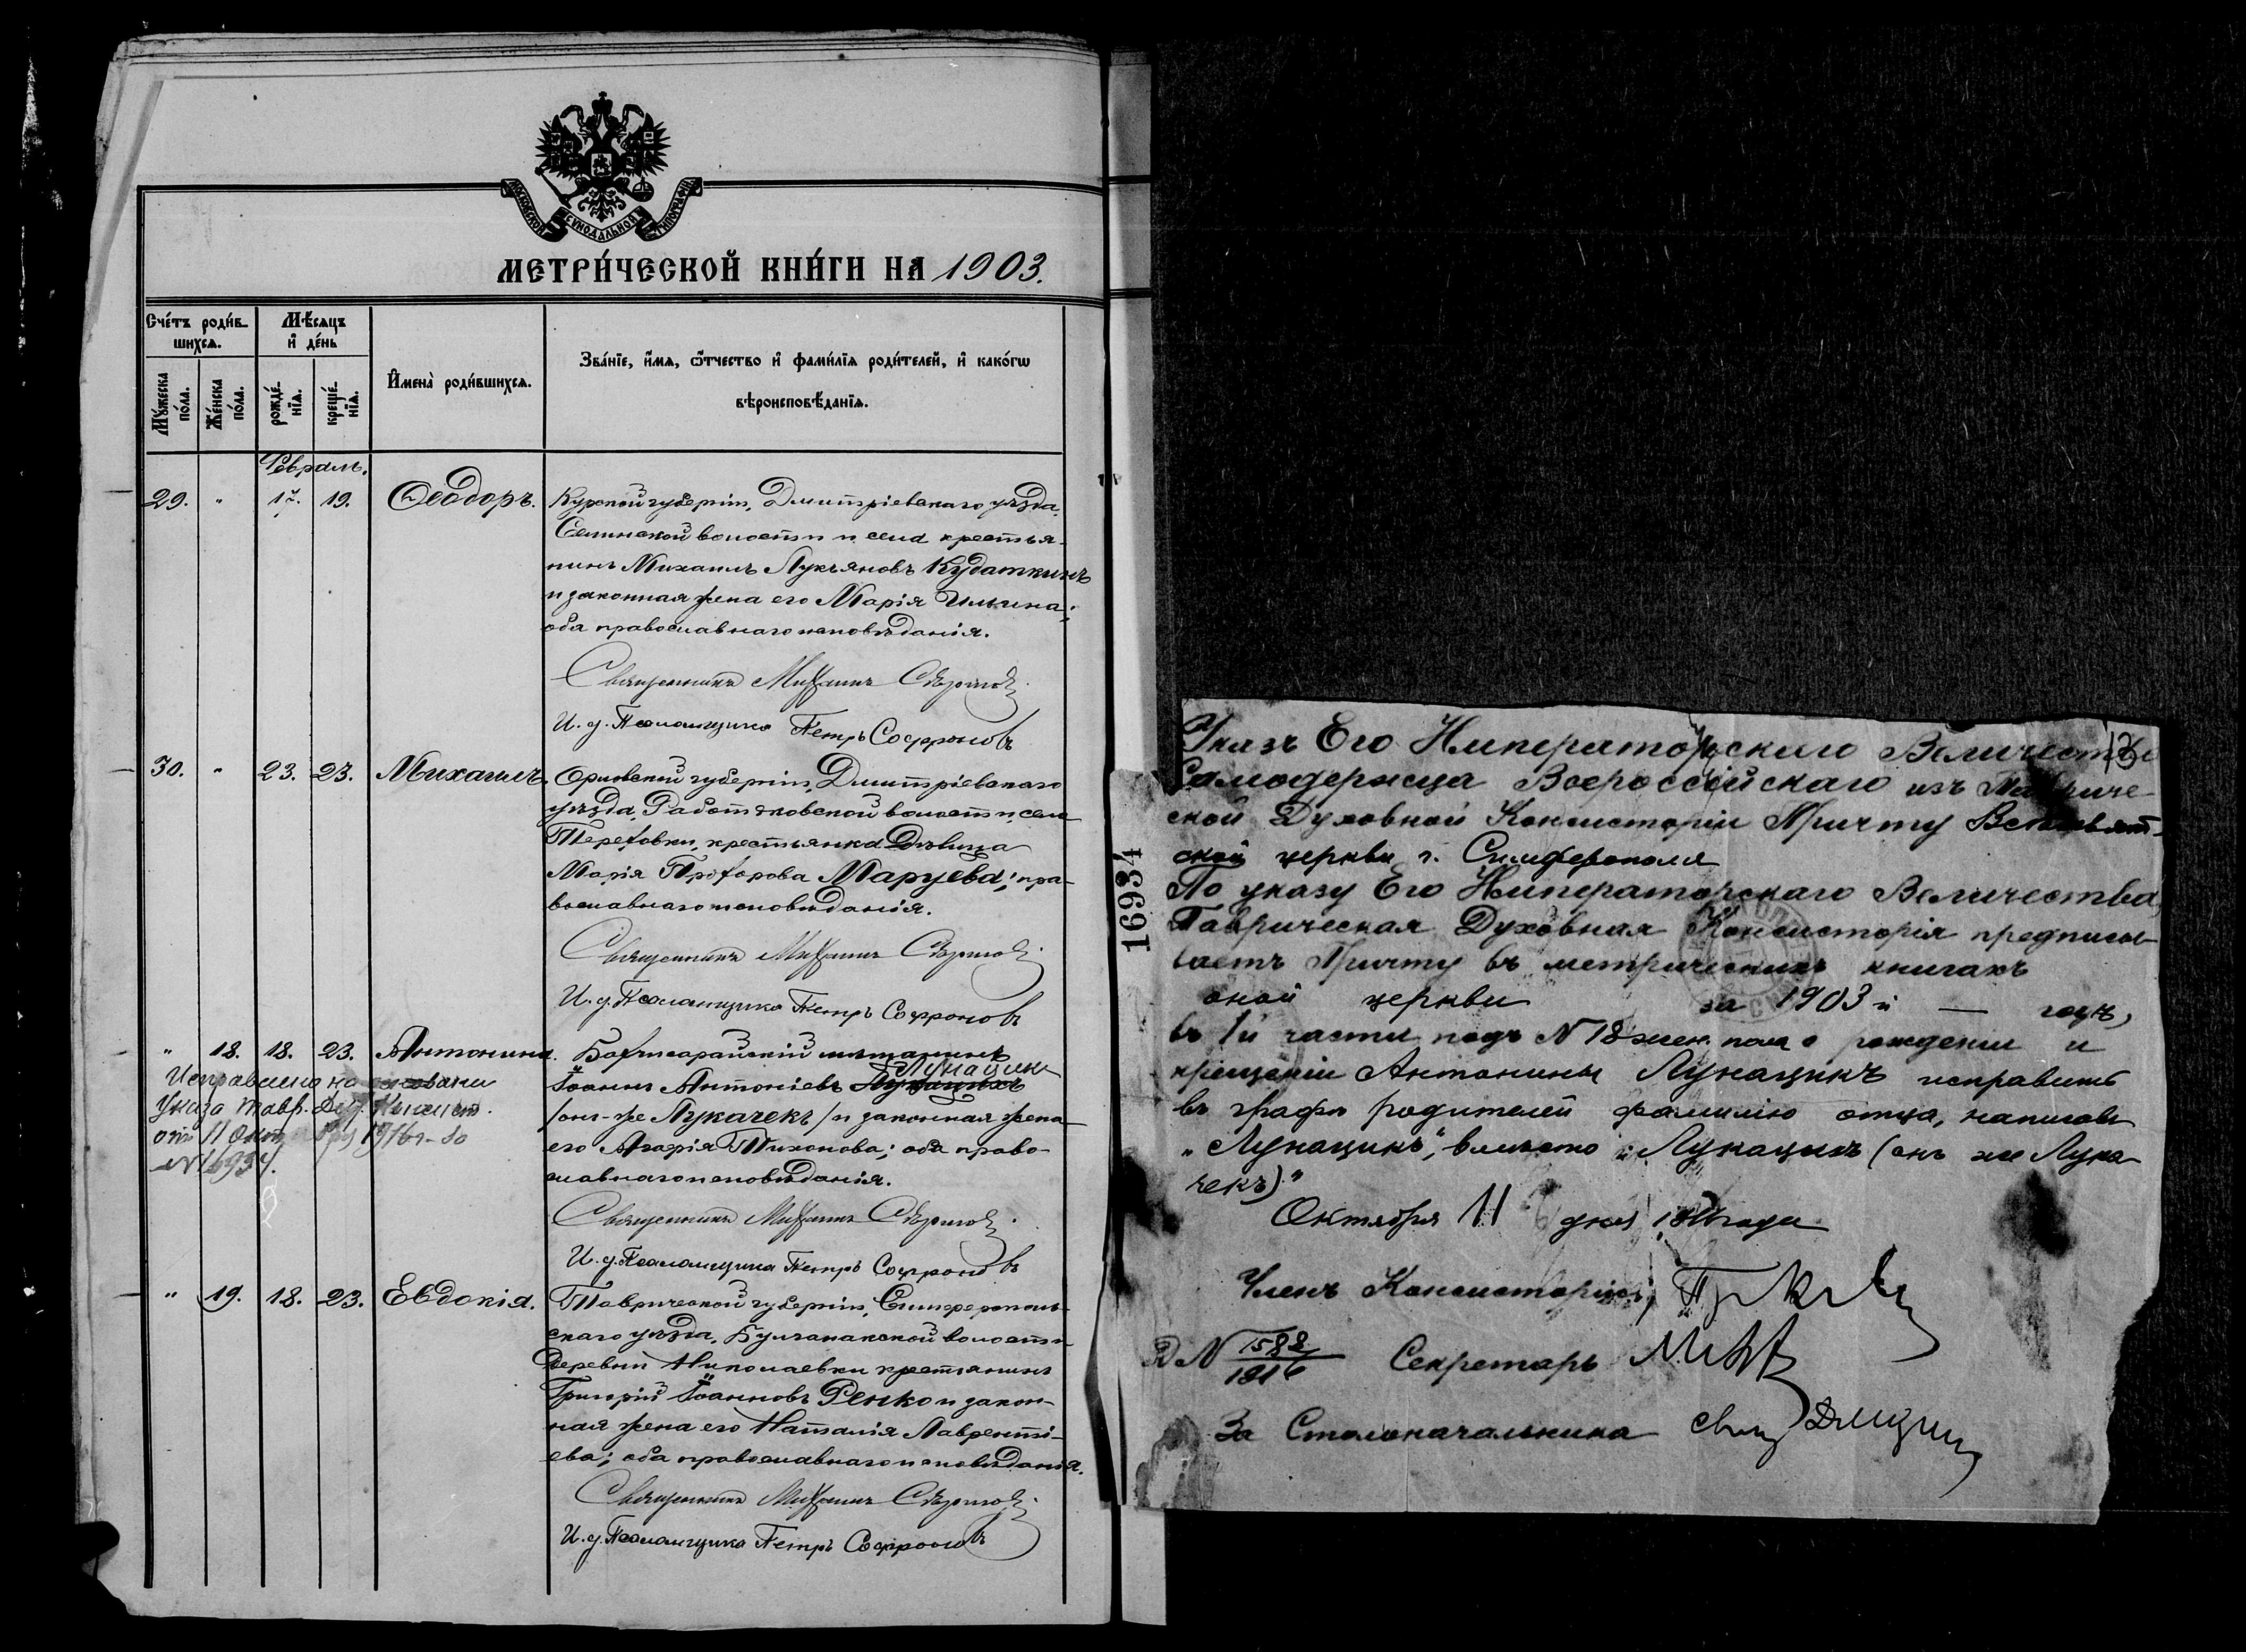 МОСКОВСКОЙ СѴНОДАЛЬНОЙ ТИПОГРАФІИ
МЕТРИ́ЧЕСКОЙ КНИ́ГИ НА 1903.
Сче́тъ роди́в-
шихсѧ.
Мѣ́сѧцъ
и҆ де́нь
Му́жеска
по́ла.
Же́нска
по́ла.
рожде́-
нїѧ.
креще́-
нїѧ.
И҆мена̀ роди́вшихсѧ.
Зва́нїе, и҆́мѧ, ѻ҆́тчество и҆ фами́лїѧ роди́телей, и҆ како́гѡ
вѣроисповѣ́данїѧ.
Февраль.
29. " 17. 19. Ѳеодоръ.
Курской губерніи, Дмитріевскаго уѣзда,
Селинской волости и села крестья-
нинъ Михаилъ Лукьяновъ Кудаткинъ
и законная жена его Марія Ильина;
оба православнаго исповѣданія.
Священникъ Михаилъ
И. д. Псаломщика Петръ Софроновъ
30. " 23. 23. Михаилъ.
Орловской губерніи, Дмитріевскаго
уѣзда, волости, села
Тереховки, крестьянка дѣвица
Марія Прохорова Маруева; пра-
вославнаго исповѣданія.
Священникъ Михаилъ
И. д. Псаломщика Петръ Софроновъ
" 18. 18. 23. Антонина.
Исправлено на основаніи
Указа Тавр. Дух. Консист.
отъ 11 Октября 1916 г. за
№ 16934.
Бахчисарайскій мѣщанинъ
Лукащикъ
Іоаннъ Антоніевъ
/онъ-же Лукачекъ/ и законная жена
его Агафія Тихонова; оба право-
славнаго исповѣданія.
Священникъ Михаилъ
И. д. Псаломщика Петръ Софроновъ
" 19. 18. 23. Евдокія.
Таврической губерніи, Симферополь-
скаго уѣзда, Булганакской волости
деревни Николаевки крестьянинъ
Григорій Іоанновъ Ренко и закон-
ная жена его Наталія Лавренті-
ева; оба православнаго исповѣданія.
Священникъ Михаилъ
И. д. Псаломщика Петръ Софроновъ
16934
Указъ Его Императорскаго Величества
Самодержца Всероссійскаго изъ Тавриче-
ской Духовной Консисторіи Причту
ской церкви г. Симферополя
По указу Его Императорскаго Величества,
Таврическая Духовная Консисторія предписы-
ваетъ Причту въ метрическихъ книгахъ
оной церкви за 1903 й — годъ,
въ 1й части подъ № 18 жен. пола о рожденіи и
крещеніи Антонины Лукащикъ исправить
въ графѣ родителей фамилію отца, написавъ
„Лукащикъ", вмѣсто „Лукацыкъ (онъ же Лука-
чекъ)."
Октября 11 дня 1916 года
Членъ Консисторіи,
№ 1588/1916 Секретарь
За Столоначальника